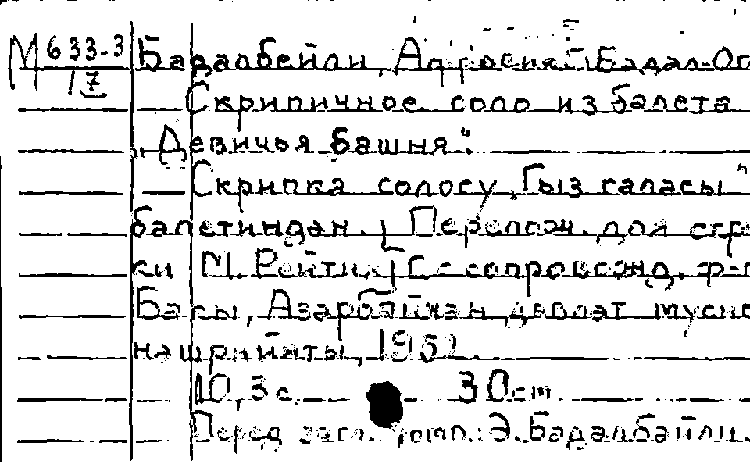 М 633-3 Бадалбейли, Афрасияб Бадал-Ог
17 Скрипичное соло из балета
„Девичья башня“.
Скрипка солосу „Гыз галасы“
балетиндан. [Перелож. для скри
ки М. Рейтих] С сопровожд. ф-п
Бакы, Азарбайчан довлат мусиг
нашрийаты, 1952.
10, 3 с. 30 cm
Перед загл. Э. Бадалбайли.